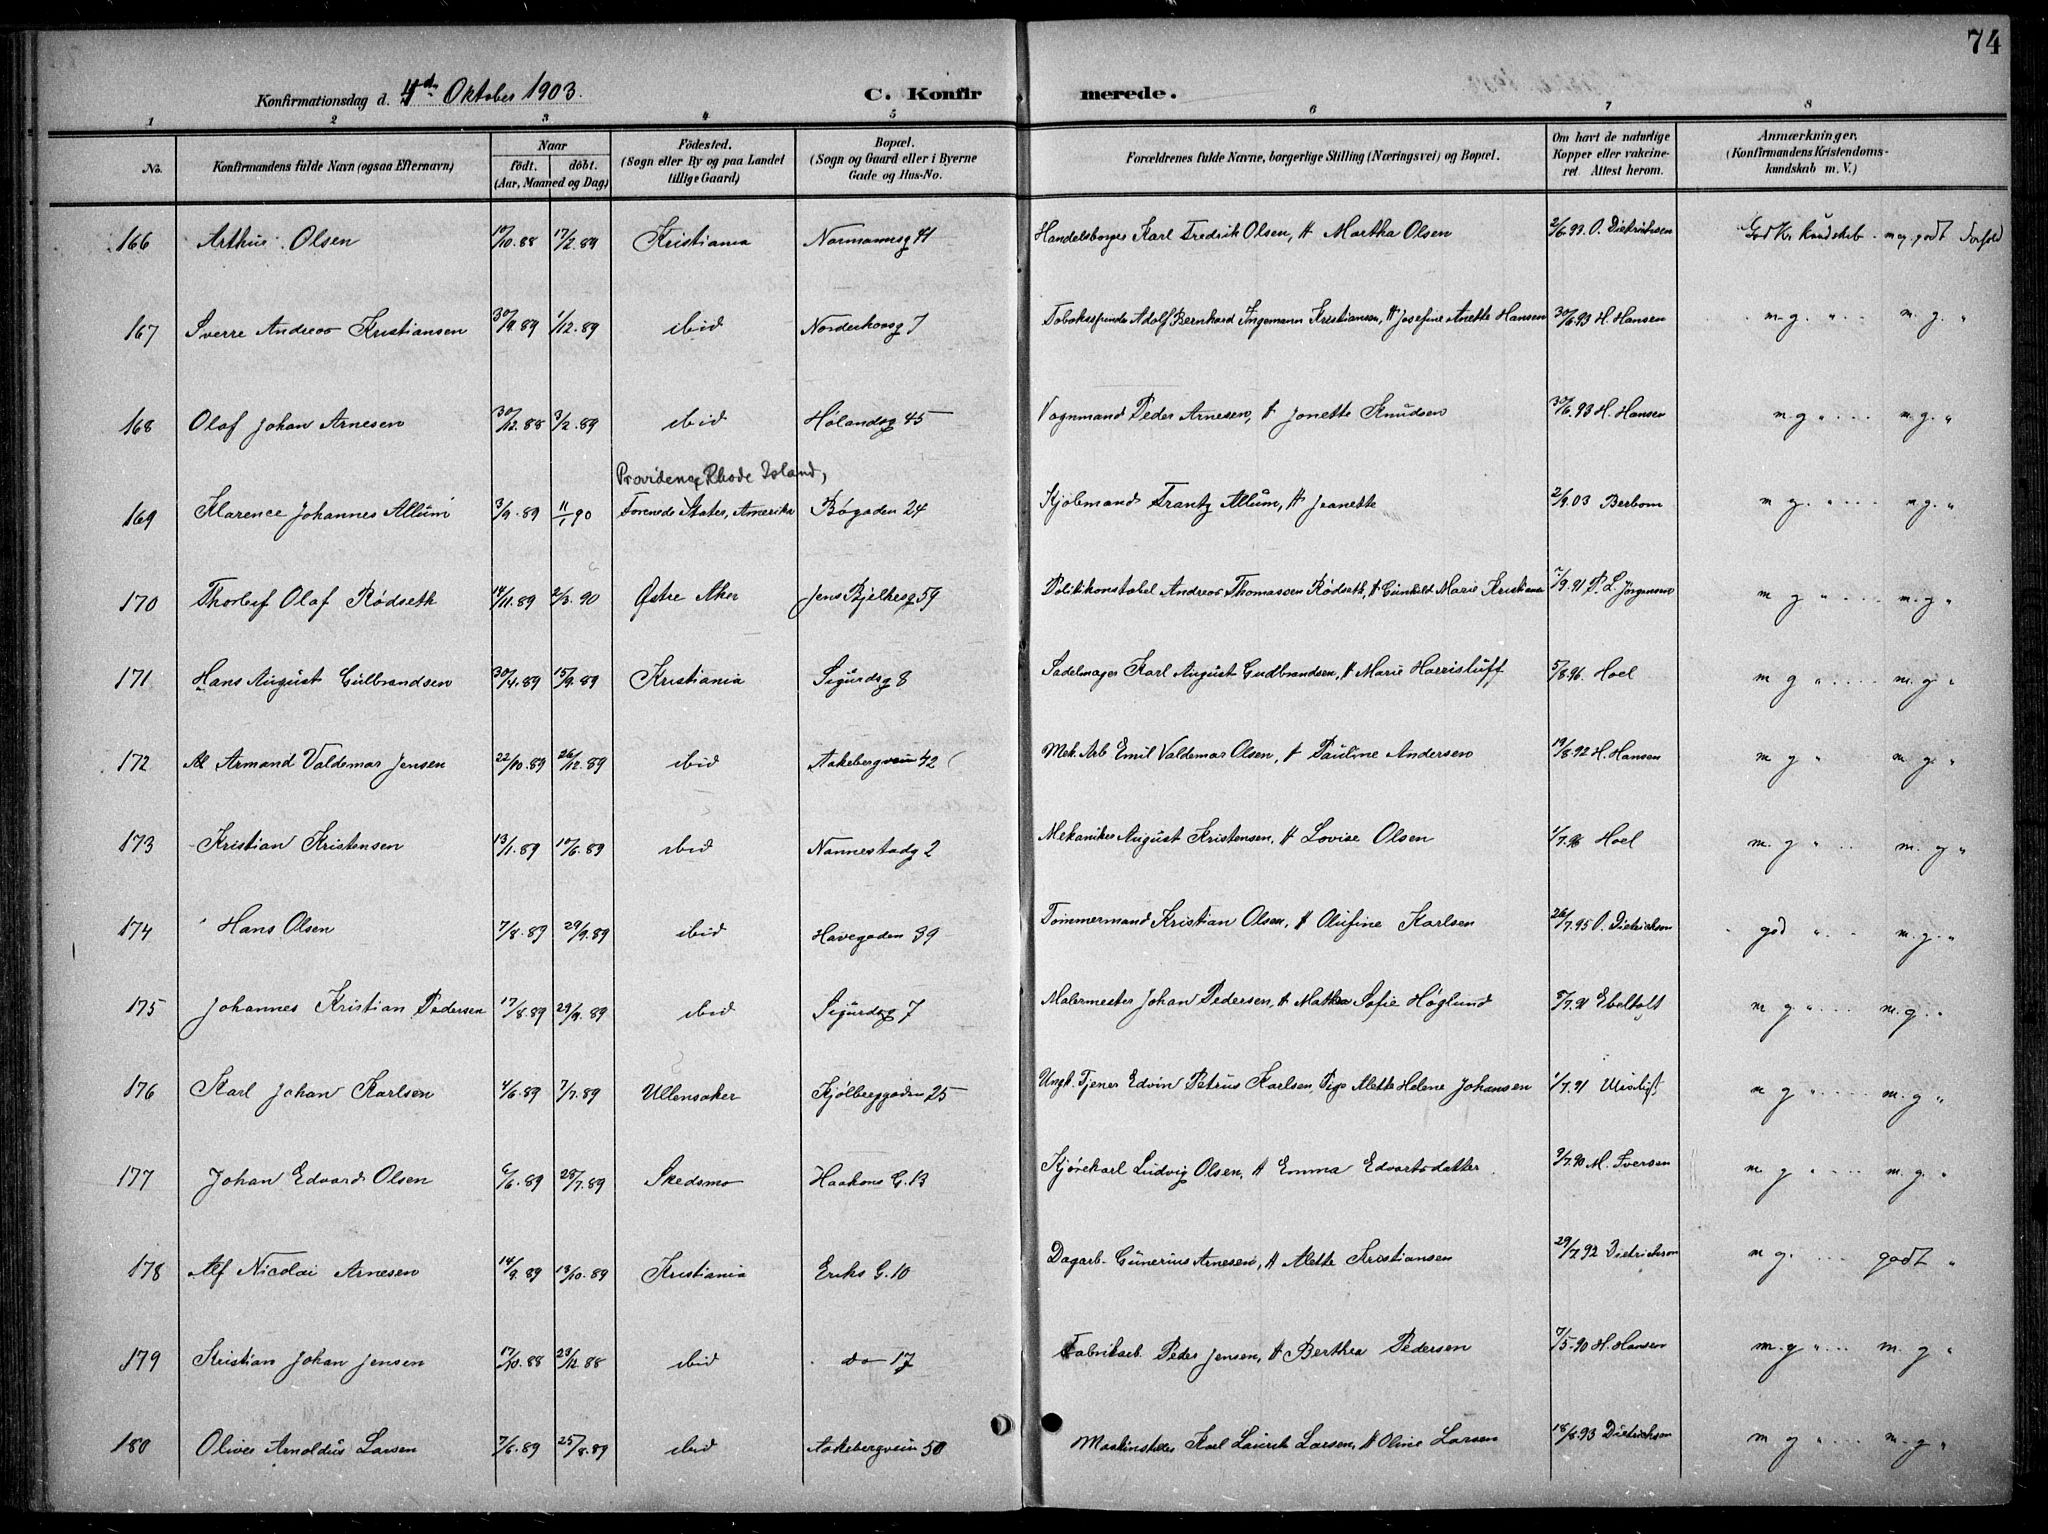 74
Konfirmationsdag d. 4de Oktober 1903.
C. Konfirmerede.
1 2 3 4 5 6 7 8
No.
Konfirmandens fulde Navn (ogsaa Efternavn)
Naar
födt. döbt.
(Aar, Maaned og Dag)
Födested.
(Sogn eller By og paa Landet tillige Gaard)
Bopæl.
(Sogn og Gaard eller i Byerne Gade og Hus-No.
Forældrenes fulde Navne, borgerlige Stilling (Næringsvei) og Bopæl.
Om havt de naturlige Kopper eller vakcineret. Attest herom.
Anmærkninger.
(Konfirmandens Kristendomskundskab m. V.)
166 Arthur Olsen 17/10.88 17/2.89 Kristiania Normannsg 41 Handelsborger Karl Fredrik Olsen, H Martha Olsen 2/6.93. O. Dietrichson God Kr. kundskab. meg. godt Forhold
167 Sverre Andreas Kristiansen 30/9.89 1/12.89 ibid Norderhovsg 7 Tobaksspinder Adolf Bernhard Ingemann Kristiansen, H Josefine Anette Hansen 30/6.93 H. Hansen m. g. " m. g. "
168 Olaf Johan Arnesen 30/12.88 3/2.89 ibid Hölandsg 45 Vognmand Peder Arnesen, H Jonette Knudsen 30/6.93 H. Hansen m g " m. g. "
169 Klarence Johannes Allum 3/9.89 11/1 90 Providence, Rhode Island, Forenede Stater, Amerika Bøgaden 24 Kjöbmand Frantz Allum, H Jeanette 2/9.03 Berbom m g. " m g. "
170 Thorleif Olaf Rødseth 14/11.89 2/3.90 Østre Aker Jens Bjelkesg 59 Politikonstabel Andreas Thomassen Rødseth, H Gunhild Marie Kristians 7/9.91 P. L. Jörgensen m g " m. g "
171 Hans August Gulbrandsen 30/4.89 15/9.89 Kristiania Sigurdsg 8 Sadelmager Karl August Gudbrandsen, H Marie Harrisluff 5/8.96. Hoel m g " m. g "
172 Al Armand Valdemar Jensen 22/10.89 26/12.89 ibid Aakebergveien 42 Mek. Arb Emil Valdemar Olsen, H Pauline Andersen 19/8.92 H. Hansen m g " m g. "
173 Kristian Kristensen 13/1.89 10/6.89 ibid Nannestadg 2 Mekaniker August Kristensen, H Lovise Olsen 1/7.96 Hoel m. g " m. g "
174 Hans Olsen 7/8.89 29/9.89 ibid Havegaden 39 Tömmermand Kristian Olsen, H Olufine Karlsen 26/7.95 O. Dietrichson god " m. g. "
175 Johannes Kristian Pedersen 17/8.89 29/9.89 ibid Sigurdsg 7 Malermester Johan Pedersen, H Mathea Sofie Höglund 8/7.91 Ebeltoft m g " m. g. "
176 Karl Johan Karlsen 4/6.89 7/7.89 Ullensaker Kjölberggaden 25 Ungk. Tjener Edvin Petrus Karlsen, Pige Alette Helene Johansen 1/7.91 m g " m. g "
177 Johan Edvard Olsen 6/6.89 28/7.89 Skedsmo Haakons G. 13 Kjörekarl Ludvig Olsen, H Emma Edvartsdatter 9/7.90 M. Iversen m. g " m. g. "
178 Alf Nicolai Arnesen 14/9.89 13/10.89 Kristiania Eriks G. 10 Dagarb. Gunerius Arnesen, H Alette Kristiansen 29/7.92 Dietrichson m g. godt "
179 Kristian Johan Jensen 17/10.88 23/12.88 ibid do 17 Fabrikarb. Peder Jensen, H Berthea Pedersen 7/5.90 H. Hansen m. g " m. g "
180 Oliver Arnoldus Larsen 7/6.89 25/8.89 ibid Aakebergveien 50 Maskinsteder Karl Laurik Larsen, H Oline Larsen 18/8.93 Dietrichson m g " m. g "